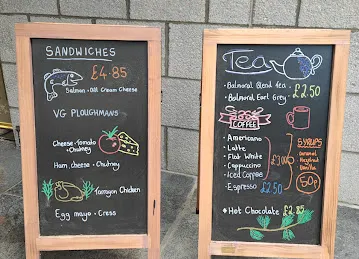 SANDWICHES
£4.85
Salmon + Dill Cream Cheese
VG PLOUGHMANS
Cheese + Tomato
+ Chutney
Ham, cheese + Chutney
Tarragon Chicken
Egg mayo + Cress
Tea
Balmoral Blend tea
Balmoral Earl Grey
£2.50
COFFEE
Americano
Latte
Flat White
Cappuccino
Iced Coffee
Espresso £2.50
SYRUPS
Caramel
Hazelnut
Vanilla
50p
Hot Chocolate £2.85